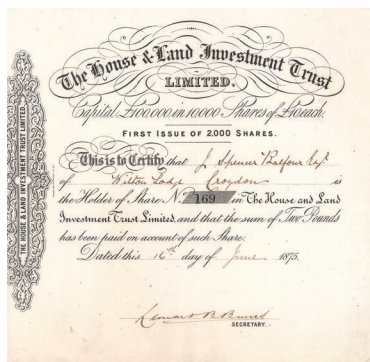 The House & Land Investment Trust
LIMITED.
Capital £100,000, in 10,000 Shares of £10 each.
FIRST ISSUE OF 2,000 SHARES.
This is to Certify that J. Spencer Balfour Esqr.
of Wilton Lodge Croydon is
the Holder of Share No. 169 in The House and Land
Investment Trust Limited, and that the sum of Two Pounds
has been paid on account of such Share.
Dated this 16th day of June 1875.
Leonard B Burns
SECRETARY.
THE HOUSE & LAND INVESTMENT TRUST LIMITED.